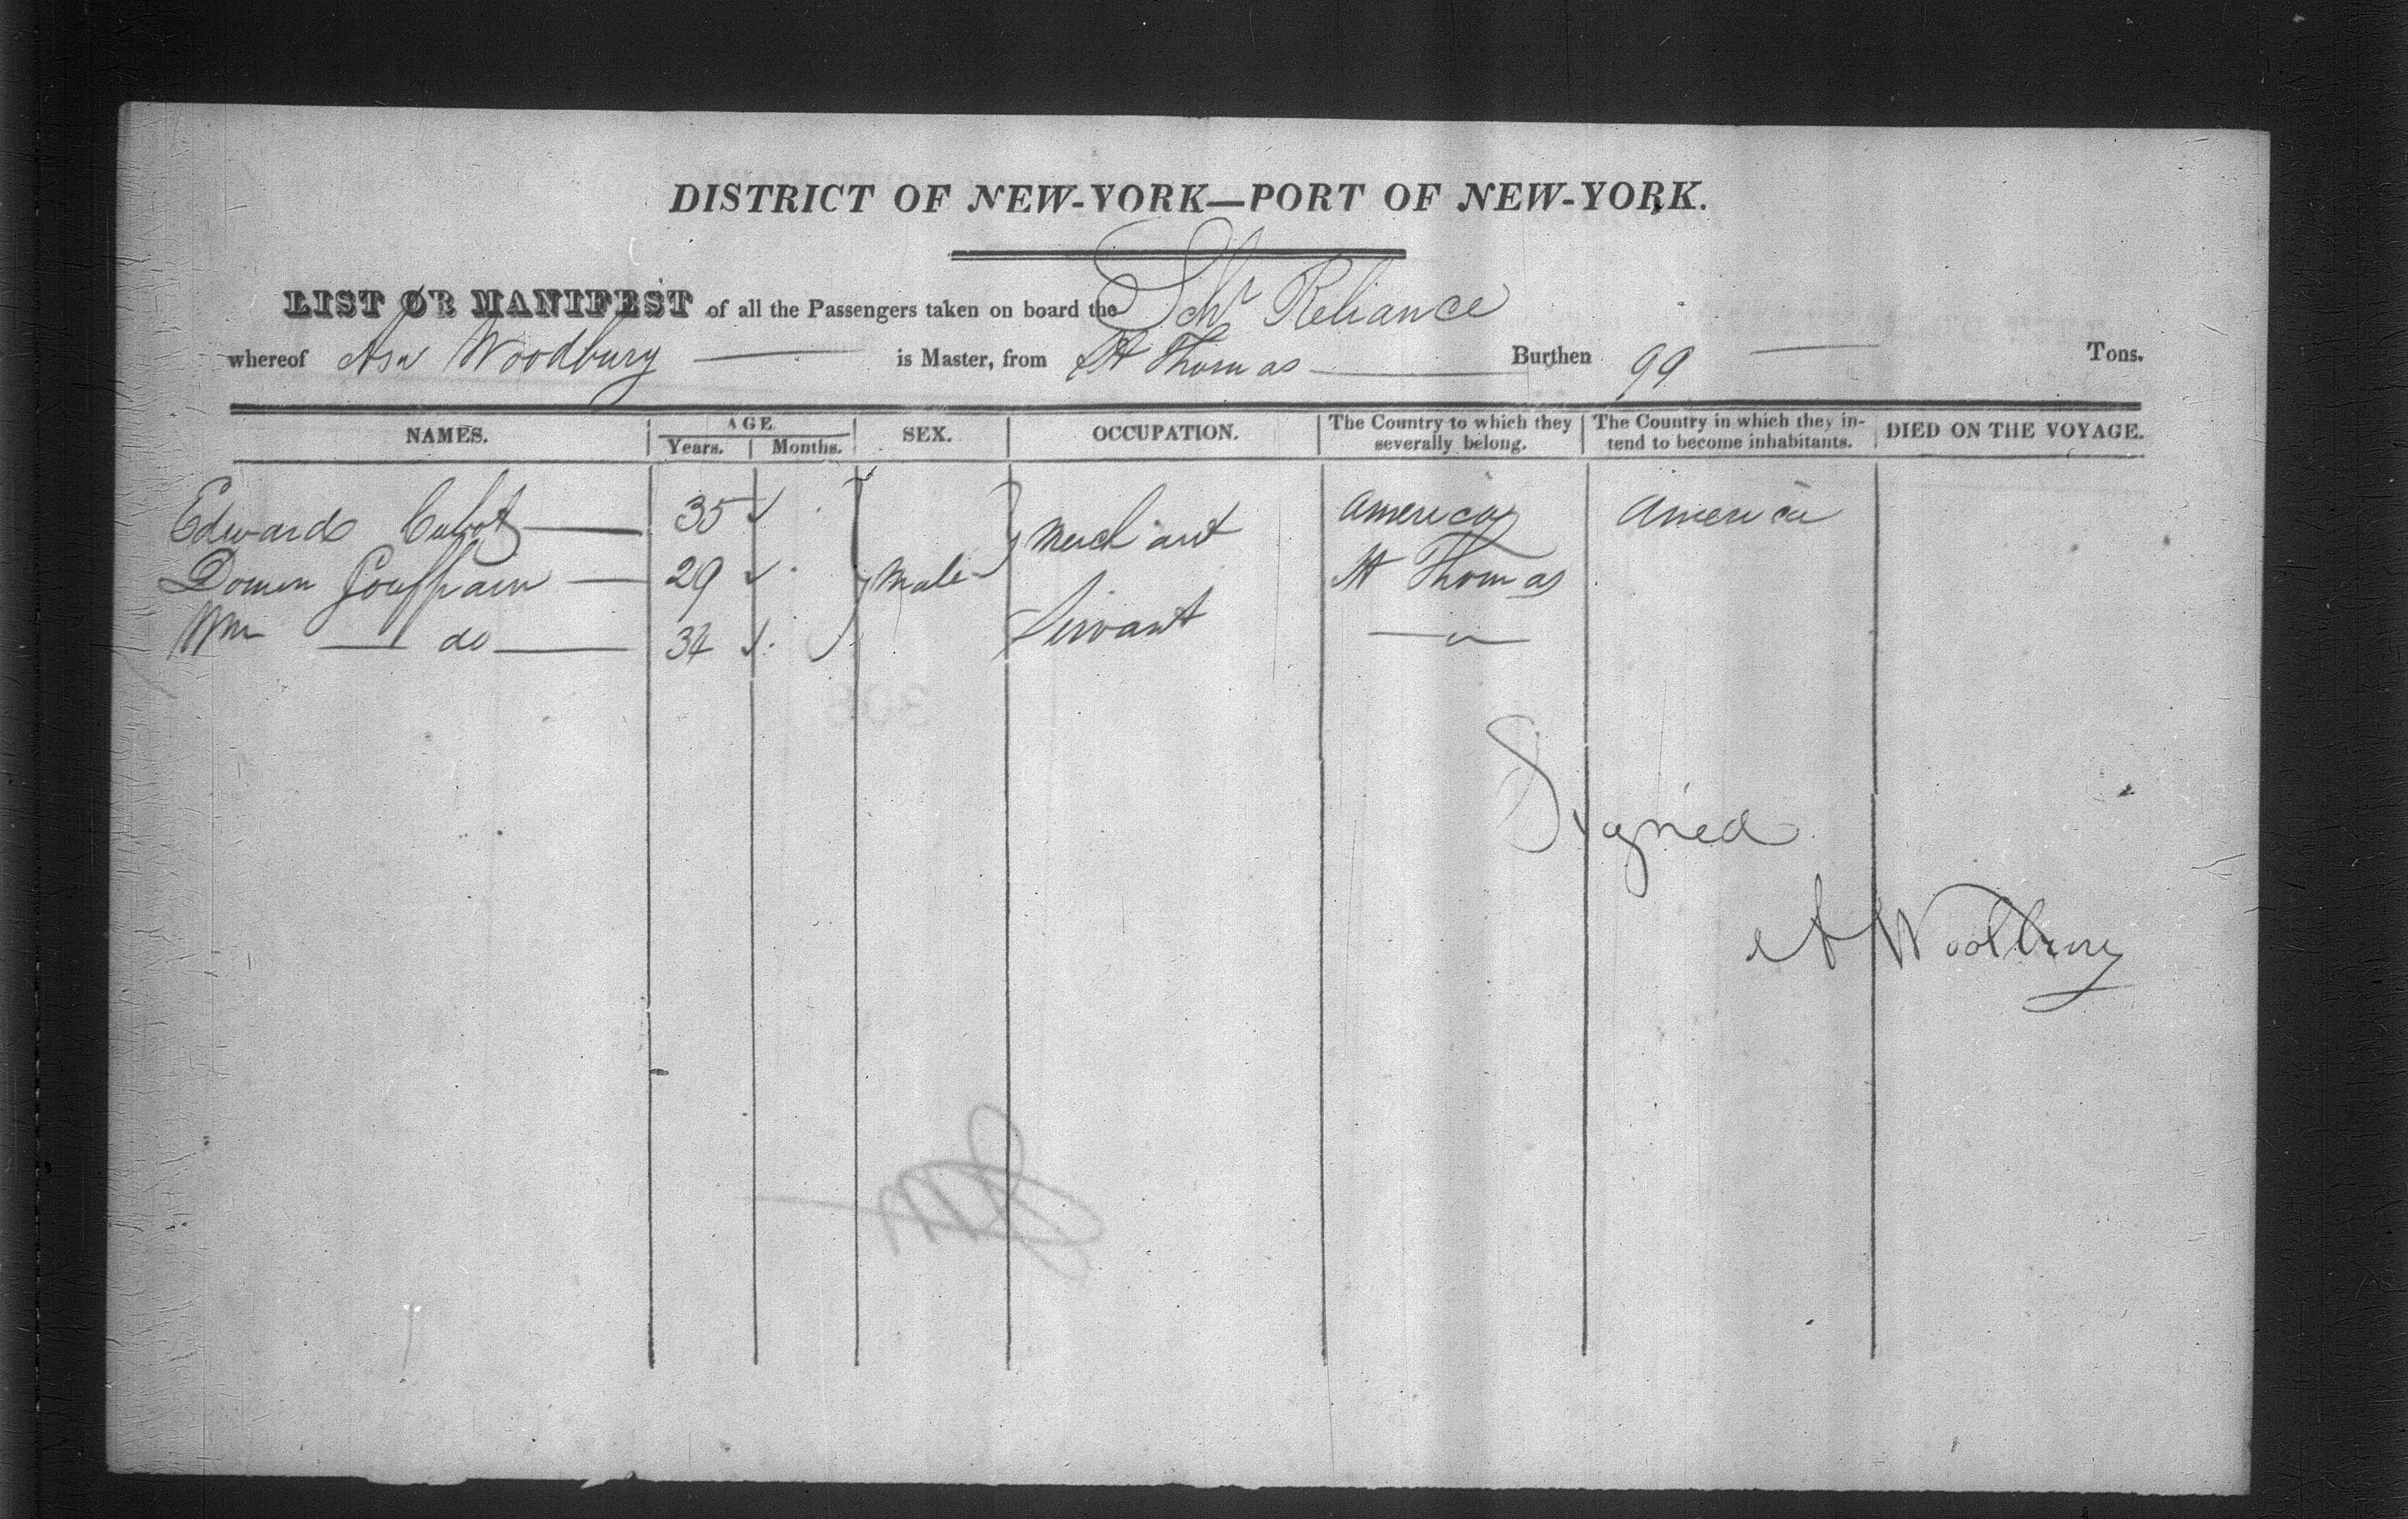 DISTRICT OF NEW-YORK—PORT OF NEW-YORK.
LIST OR MANIFEST of all the Passengers taken on board the Schr Reliance
whereof Asa Woodbury is Master, from St Thomas Burthen 99 Tons.
NAMES. AGE Years. Months. SEX. OCCUPATION. The Country to which they severally belong. The Country in which they intend to become inhabitants. DIED ON THE VOYAGE.
Edward Cabot 35 Merchant America America
29 Male St Thomas
Wm do 34 Servant "
Signed
A Woodbury